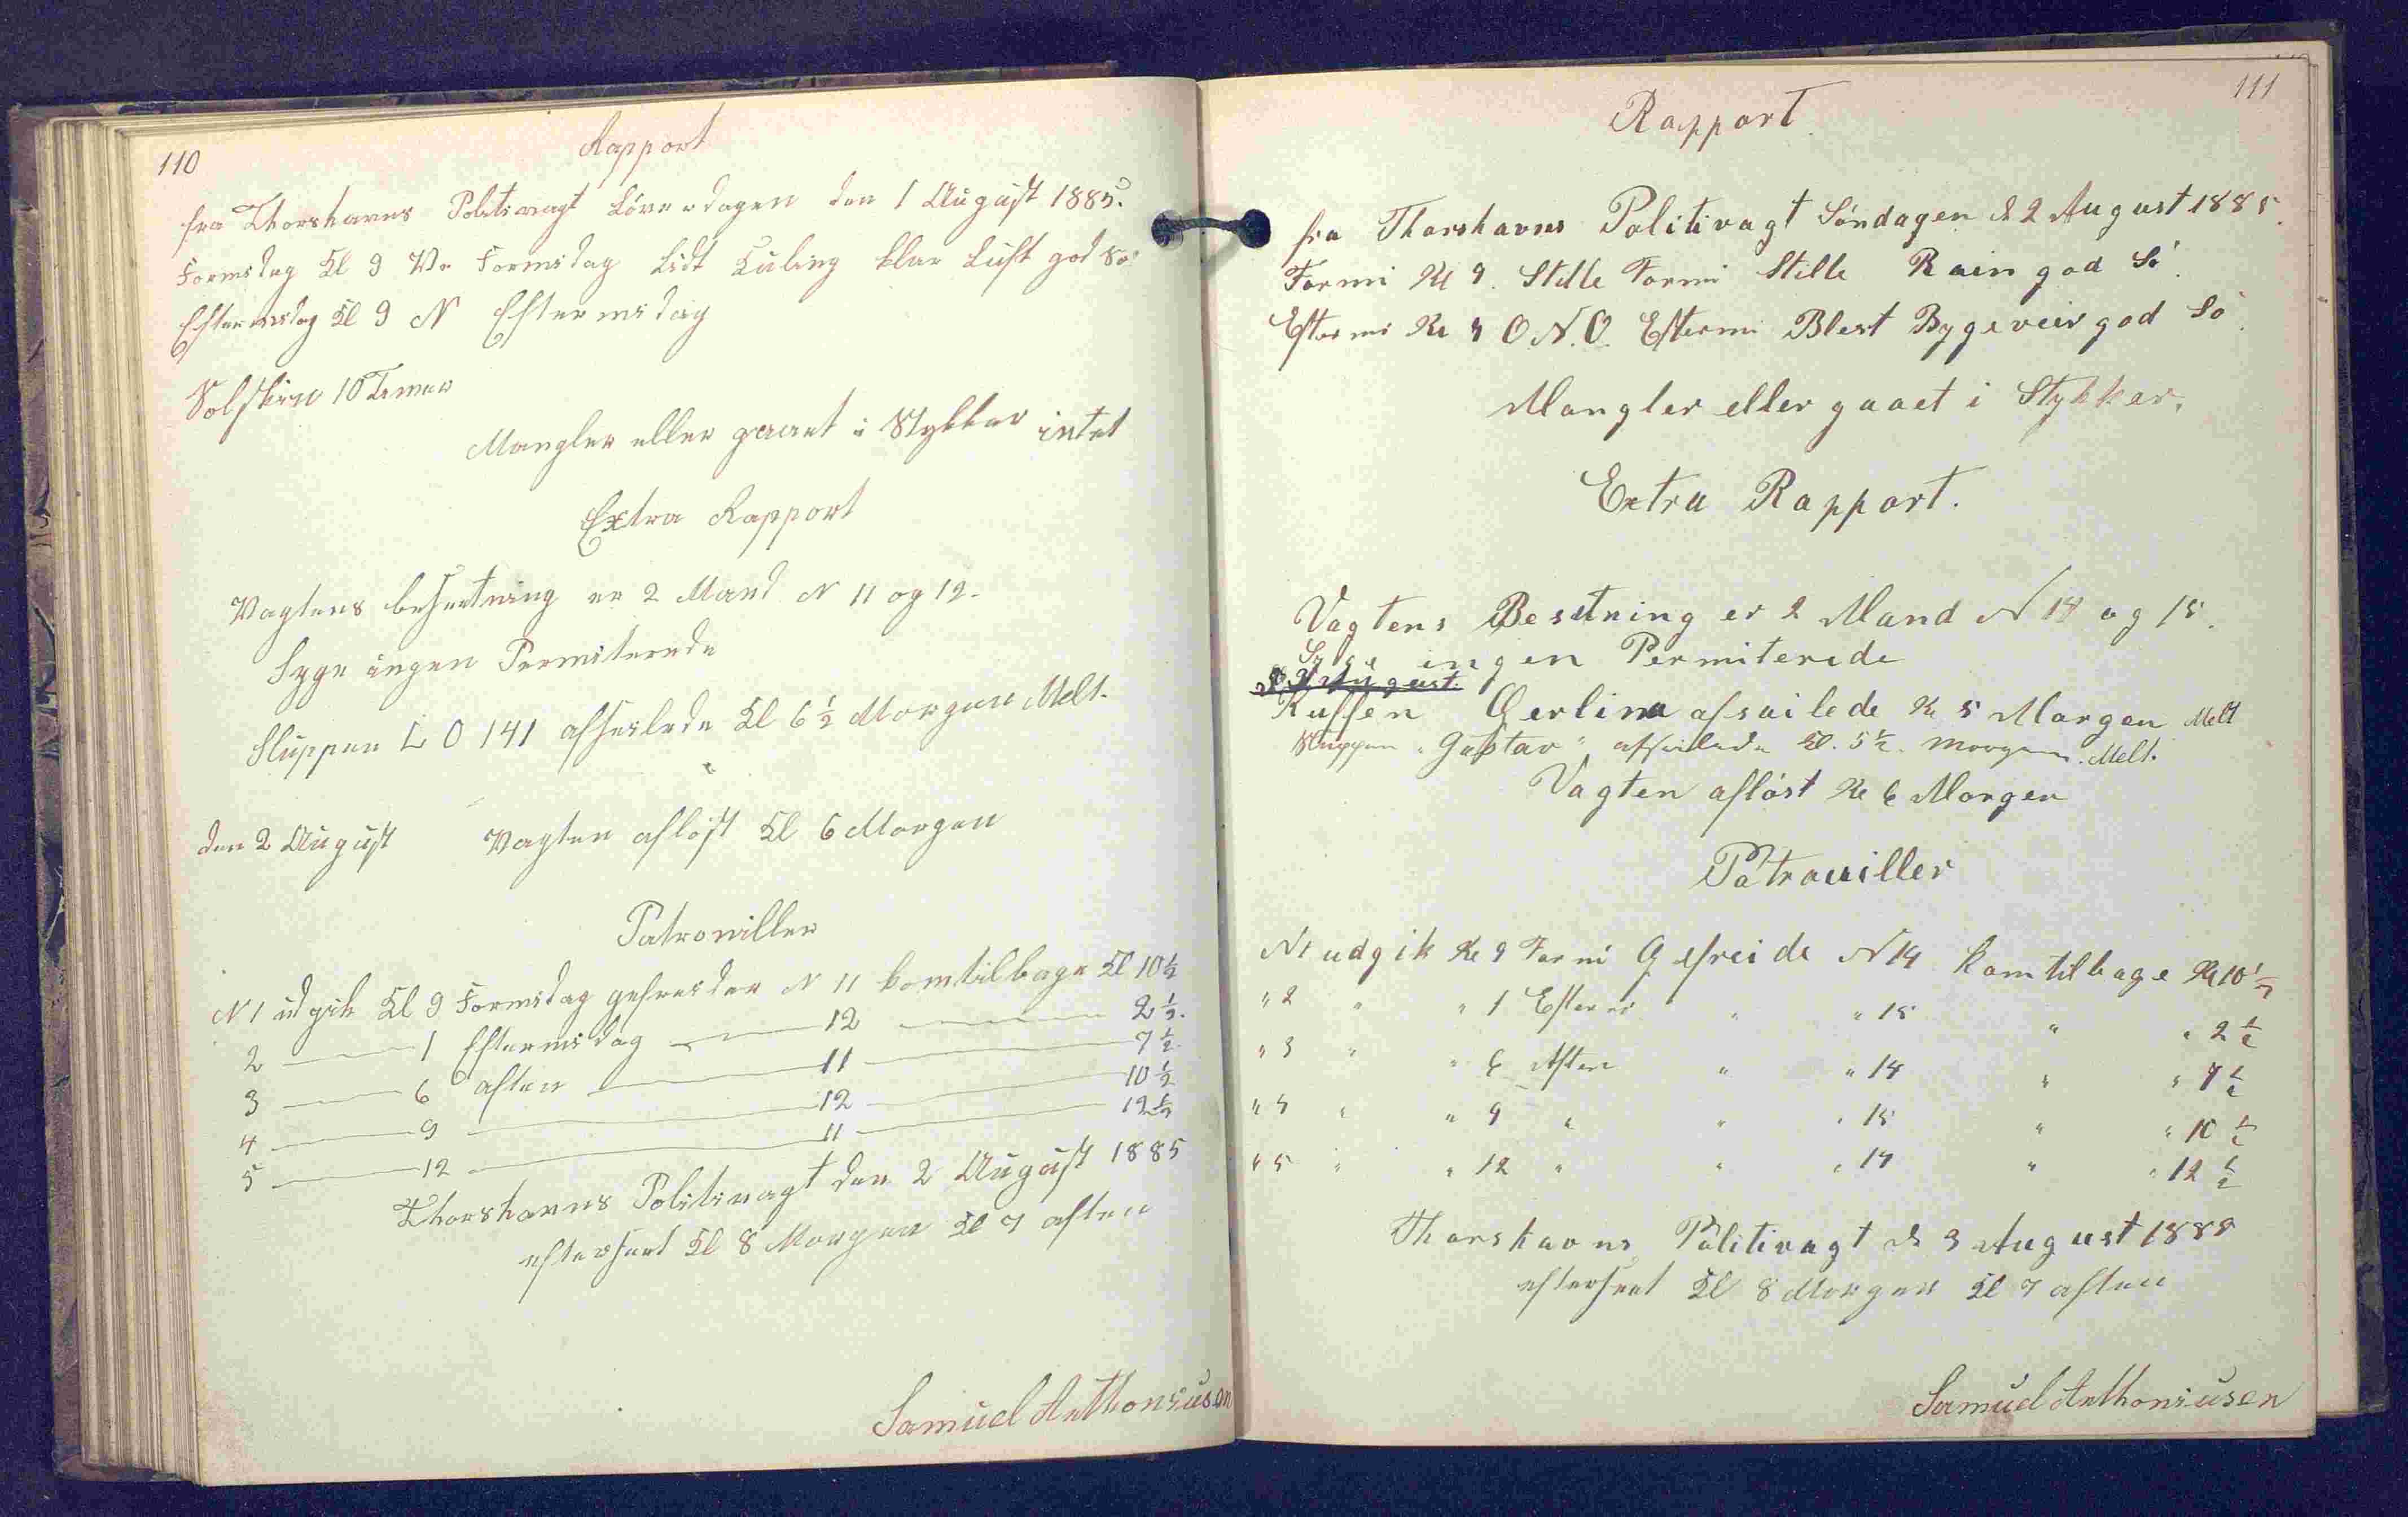 110
Rapport
fra Thorshavns Politivagt Löverdagen den 1 August 1885.
Formidag Kl 9 V. Formidag Lidt Kuling klar Luft god Sö
Eftermidag Kl 9 N Eftermidag
Solskin 10 Timer
Mangler eller gaaet i Stykker intet
Extra Rapport
Vagtens besetning er 2 Mand N 11 og 12.
Syge ingen Permiterede
Sluppen L O 141 afseilede Kl 6 1/2 Morgen Melt.
den 2 August Vagten aflöst Kl 6 Morgen
Patrouiller
N 1 udgik Kl 9 Formidag gefreider N 11 kom tilbage Kl 10 1/2
2 — 1 Eftermidag — 12 — 2 1/2.
3 — 6 aften — 11 — 7 1/2
4 — 9 — 12 — 10 1/2
5 — 12 — 11 — 12 1/2
Thorshavns Politivagt den 2 August 1885
efterseet Kl 8 Morgen Kl 7 aften
Samuel Anthoniusen
111
Rapport
fra Thorshavns Politivagt Söndagen d 2 August 1885.
Formi Kl 9. Stille Formi Stille Rain god Sö.
Eftermi Kl 9 O.N.O. Eftermi Blest Bygeveir god Sö.
Mangler eller gaaet i Stykker.
Extra Rapport.
Vagtens Besetning er 2 Mand N 14 og 15.
Syge ingen Permiterede
d 3 August.
Kuffen Gerlina afsailede Kl 5 Morgen Melt
Sluppen "Gustav" afseilede Kl. 5 1/2. Morgen. Melt.
Vagten aflöst Kl 6 Morgen
Patrouiller
N 1 udgik Kl 9 Formi Gefreide N 14 kom tilbage Kl 10 1/2
" 2 " " 1 Eftermi " " 15 " " 2 1/2
" 3 " " 6 Aften " " 14 " " 7 1/2
" 4 " " 9 " " " 15 " " 10 1/2
" 5 " " 12 " " " 14 " " 12 1/2
Thorshavns Politivagt d 3 August 1885
efterseet Kl 8 Morgen Kl 7 aften
Samuel Anthoniusen